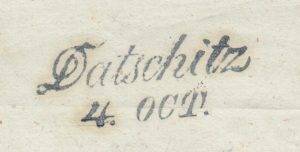 Datschitz
4. OCT.